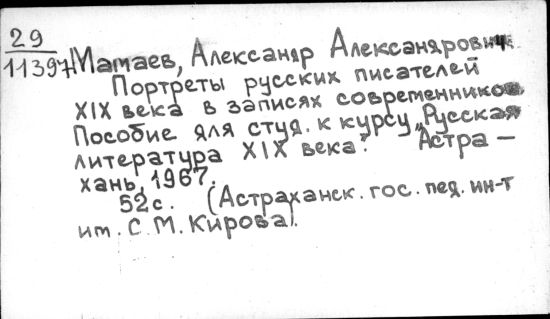 29
11397
Мамаев, Александр Александрович.
Портреты русских писателей
XIX века в записях современников
Пособие для студ. к курсу „Русская
литература XIX века". Астра-
хань, 1967.
52 с. (Астраханск. гос. пед. ин-т
им. С. М. Кирова).